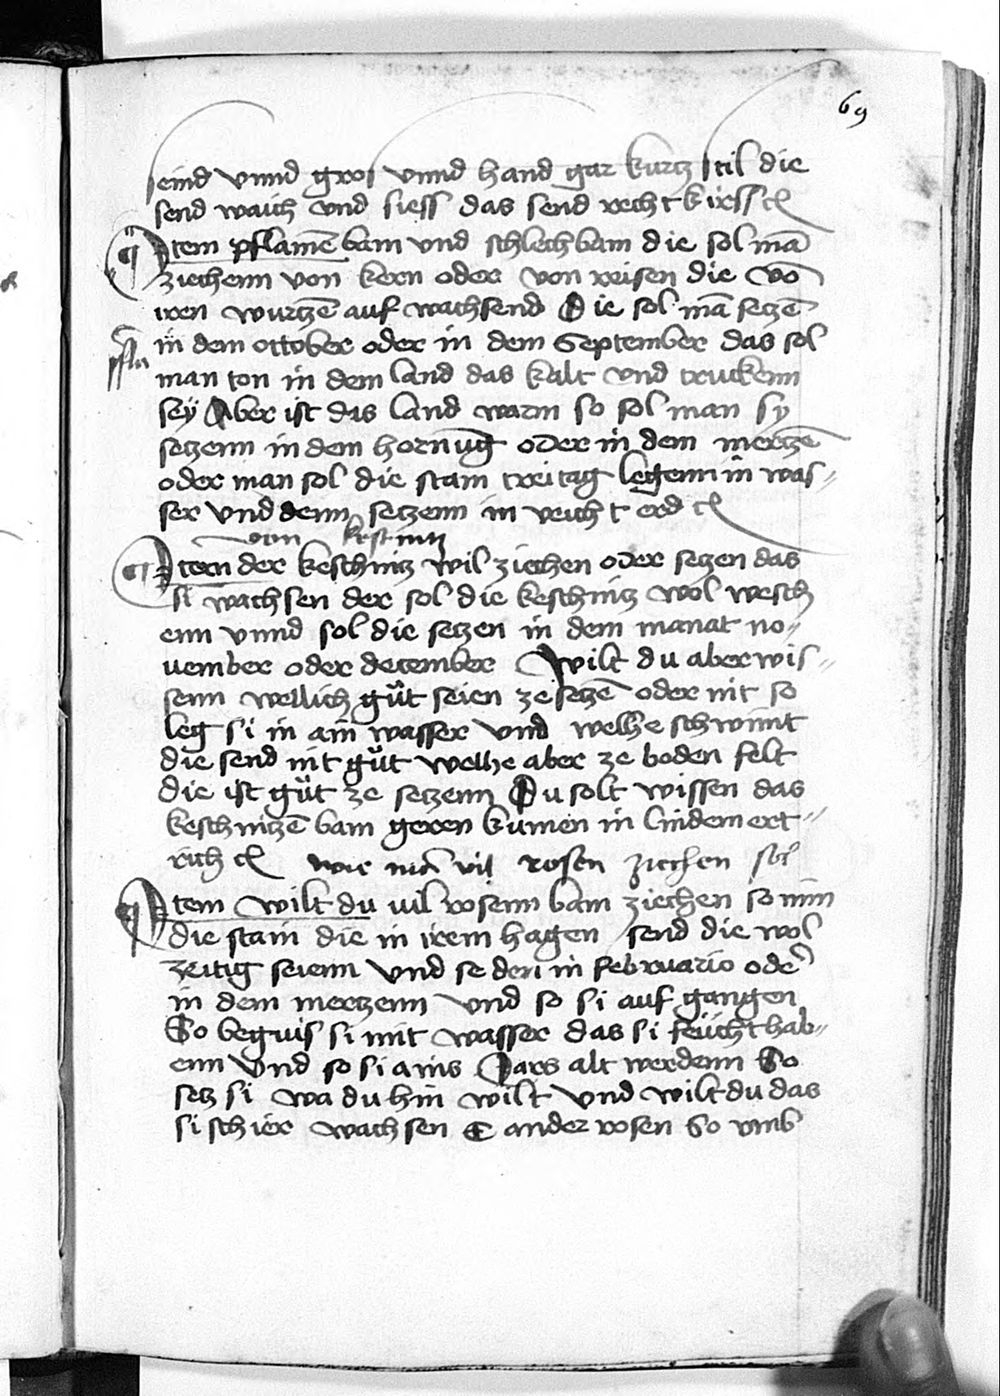 69
seind vnnd gros vnnd hand gar kurtz stil die
send waich vnd siess das send recht kirssen
Jtem pflamē bam vnd schlech bam die sol mā
ziechenn von kern oder von reisen die vō
iren wurtzē auf wachsend Die sol mā setzē
in dem ottober oder in dem September das sol
man ton in dem land das kalt vnd truckenn
seÿ Aber ist das land warm so sol man sy
setzenn in dem hornūg oder in dem mertzē
oder man sol die stam trei tag legenn in was„
ser vnd denn setzenn in veicht erd
von kestinn
Jtem der keschnitz wil ziechen oder setzen das
si wachsen der sol die keschnitz wol wesch
enn vnnd sol die setzen in dem manat no„
uember oder december Wilt du aber wis„
senn wellich gůt seien ze setzē oder nit so
leg si in ain wasser vnd welhe schwimt
die send nit gůt welhe aber ze boden felt
die ist gůt ze setzenn Du solt wissen das
keschnitzē bam geren kumen in lindem ert„
rich wie mā vil rosen ziechen sol
Jtem wilt du uil rosenn bam ziechen so nim
die stam die in irem hagen send die wol
zeitig seienn vnd se den in februario oder
in dem mertzenn vnd so si auf gangen
So beguis si mit wasser das si feücht hab„
enn vnd so si ains Jars alt werdenn So
setz si wa du hin wilt vnd wilt du das
si schier wachsen E ander rosen So vmb